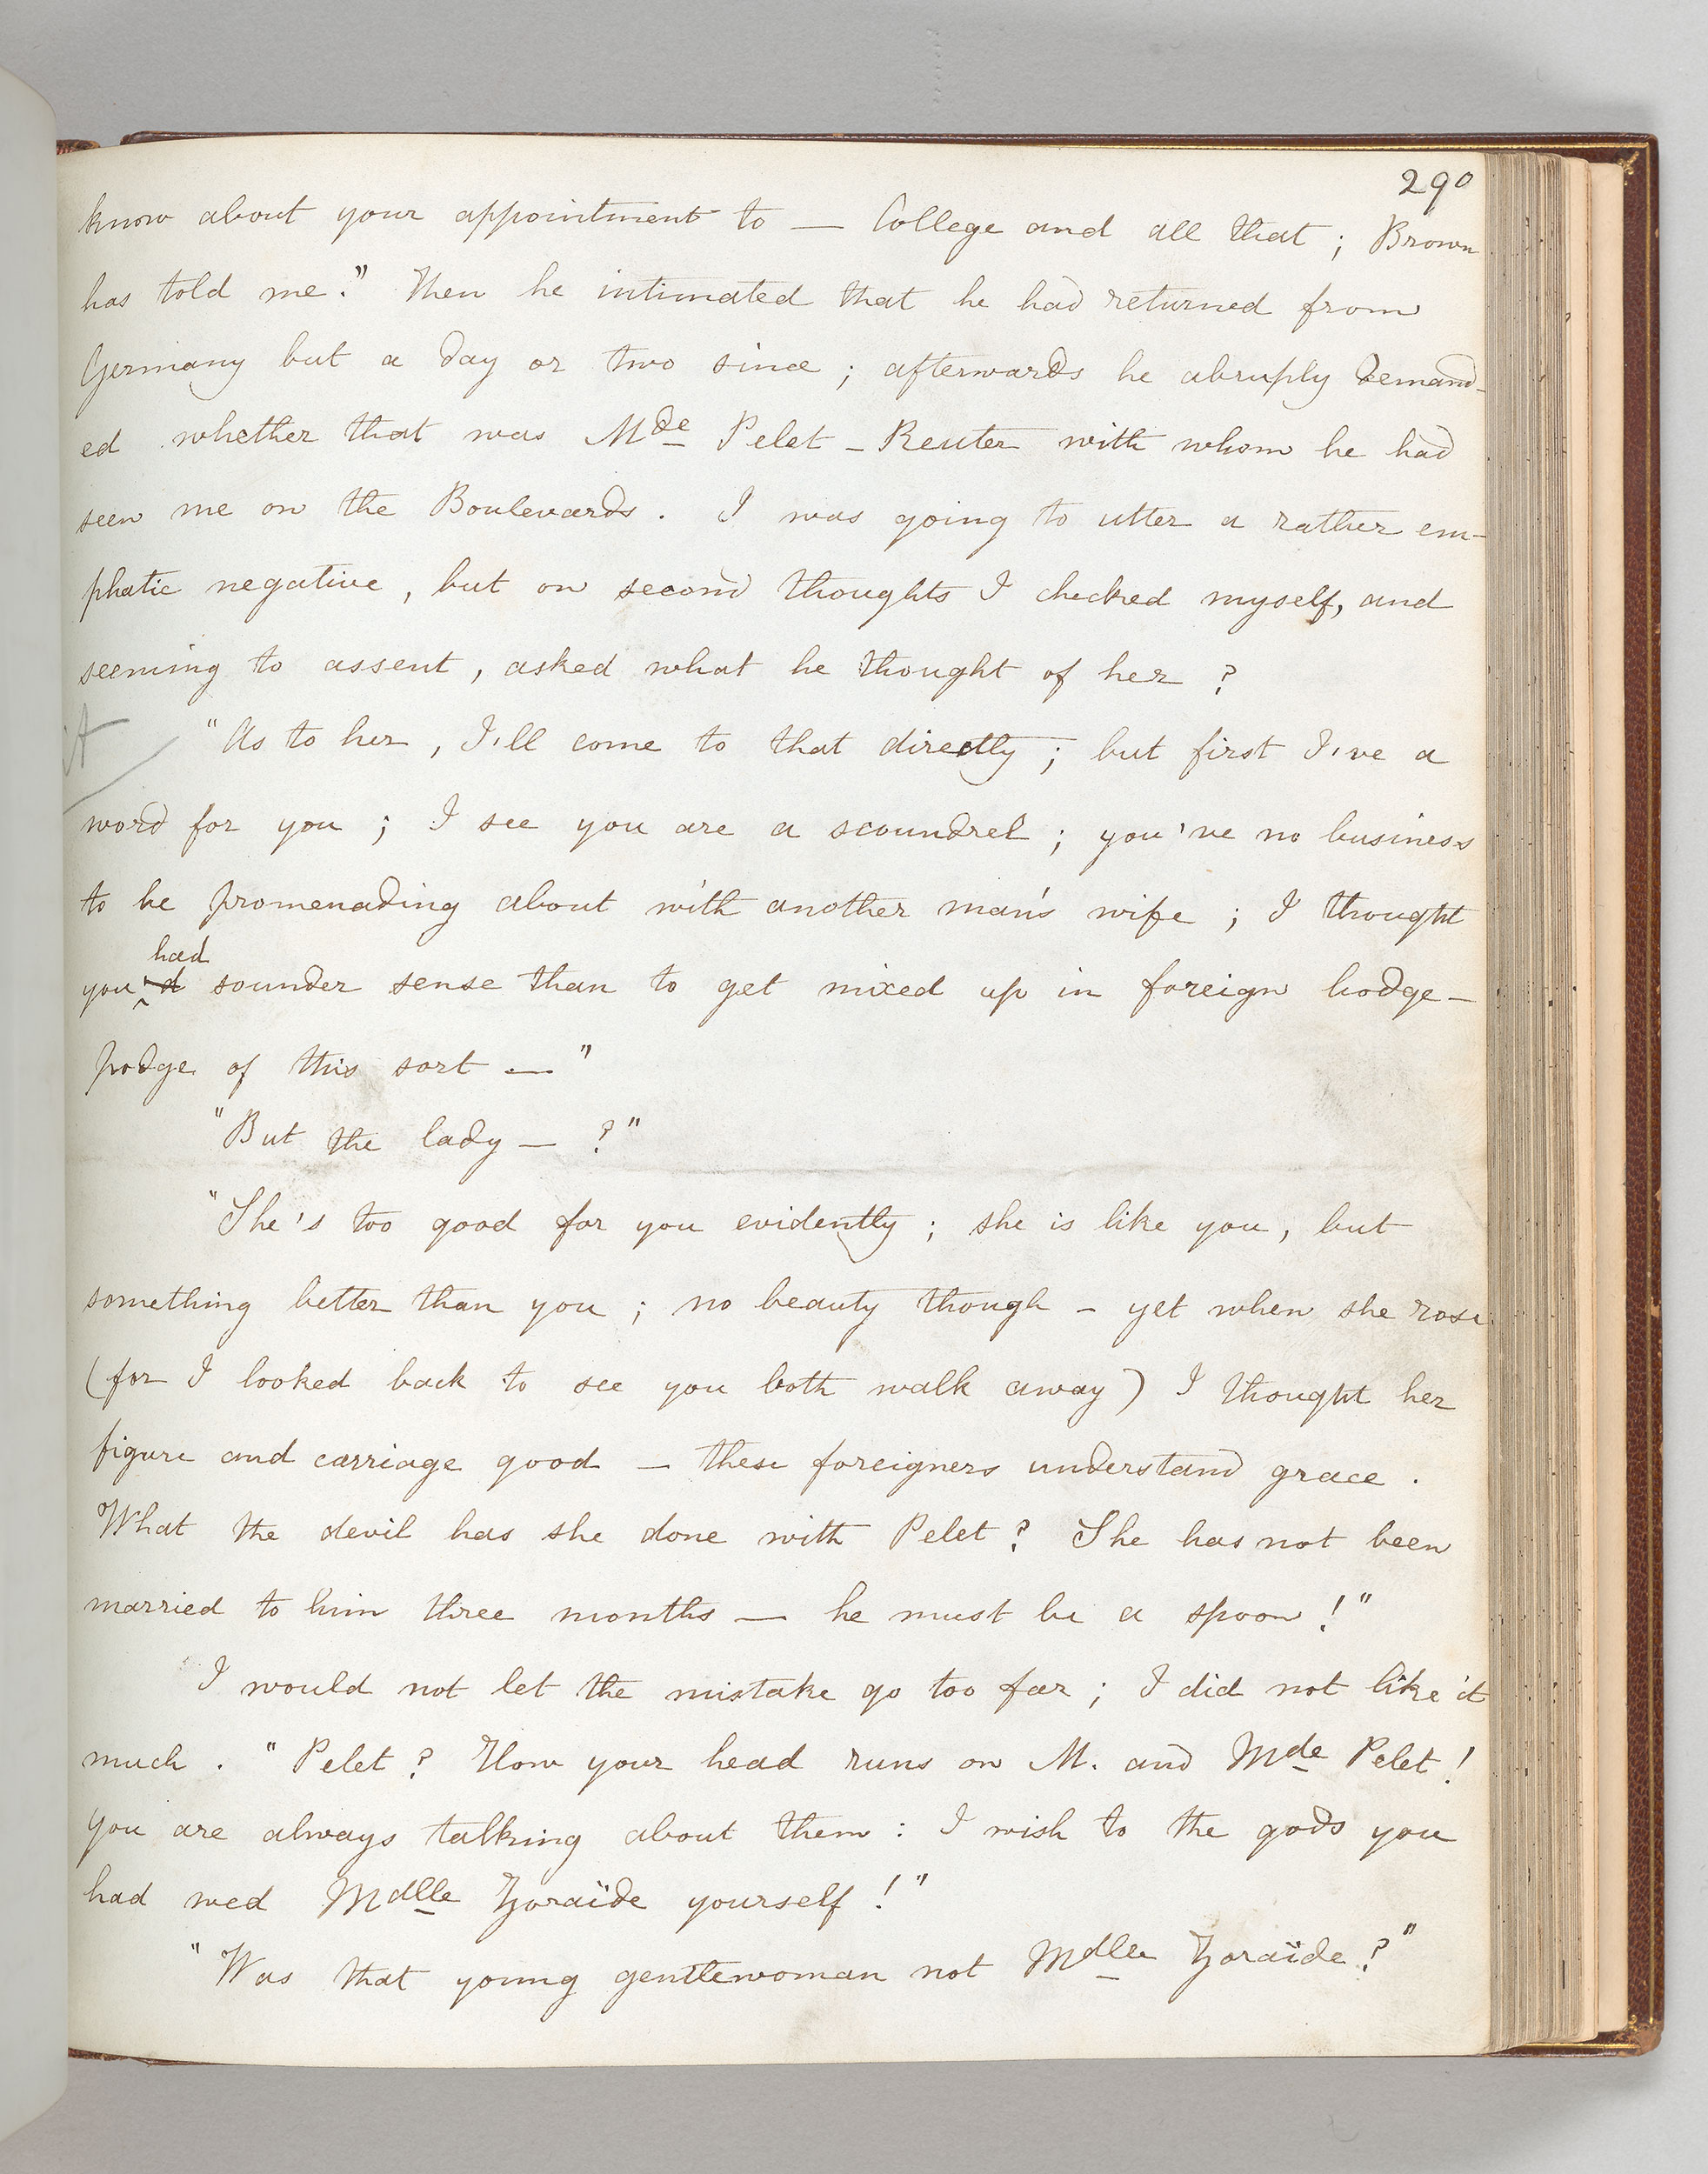 290
know about your appointment to — College and all that ; Brown
has told me." Then he intimated that he had returned from
Germany but a day or two since ; afterwards he abruply demand-
ed whether that was Mde Pelet - Reuter with whom he had
seen me on the Boulevards . I was going to utter a rather em-
phatic negative , but on second thoughts I checked myself, and
seeming to assent , asked what he thought of her ?
"As to her , I'll come to that directly ; but first I've a
word for you ; I see you are a scoundrel ; you've no business
to be promenading about with another man's wife ; I thought
had
you'd sounder sense than to get mixed up in foreign hodge-
podge of this sort — "
"But the lady — ?"
"She's too good for you evidently ; she is like you, but
something better than you ; no beauty though - yet when she rose
(for I looked back to see you both walk away) I thought her
figure and carriage good — these foreigners understand grace .
What the devil has she done with Pelet ? She has not been
married to him three months — he must be a spoon !"
I would not let the mistake go too far ; I did not like it
much . "Pelet ? How your head runs on M. and Mde Pelet !
you are always talking about them : I wish to the gods you
had wed Mdlle Zoraïde yourself !"
"Was that young gentlewoman not Mdlle Zoraïde ?"